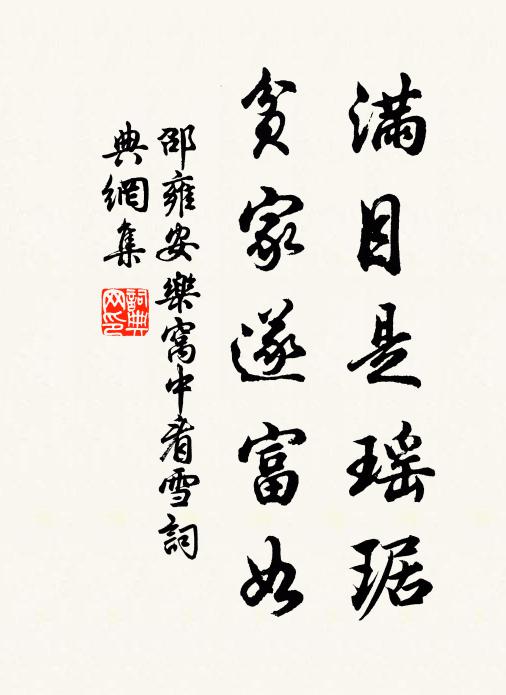 滿目是瑶琚
貧家遂富如
邵雍安樂窩中看雪詞
典網集
詞典網印